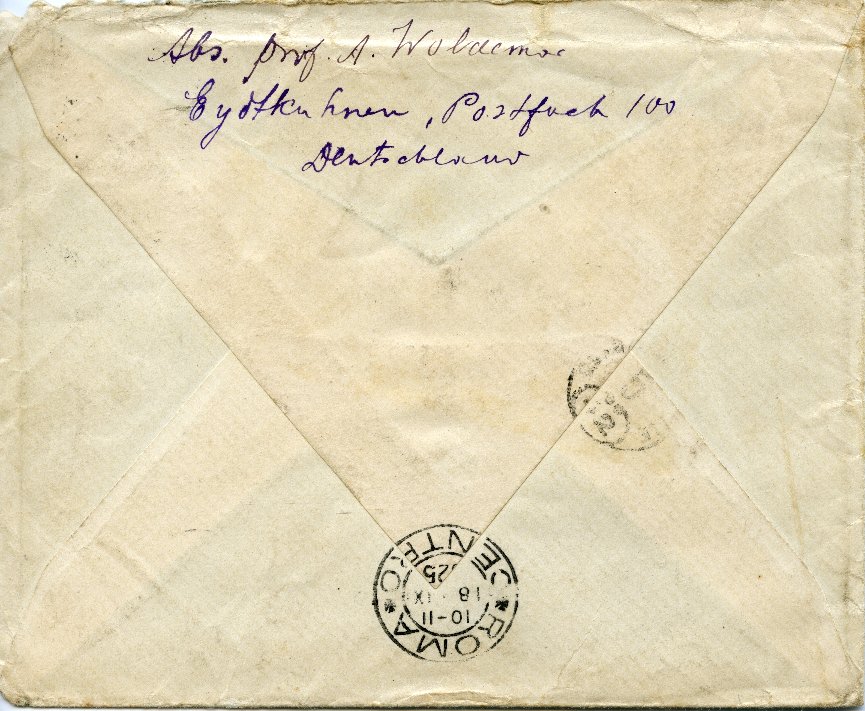 Abs. prof. A. Woldemar
Eydtkuhnen, Postfach 100
Deutschland
ROMA * CENTRO *
10-11
18 IX
925